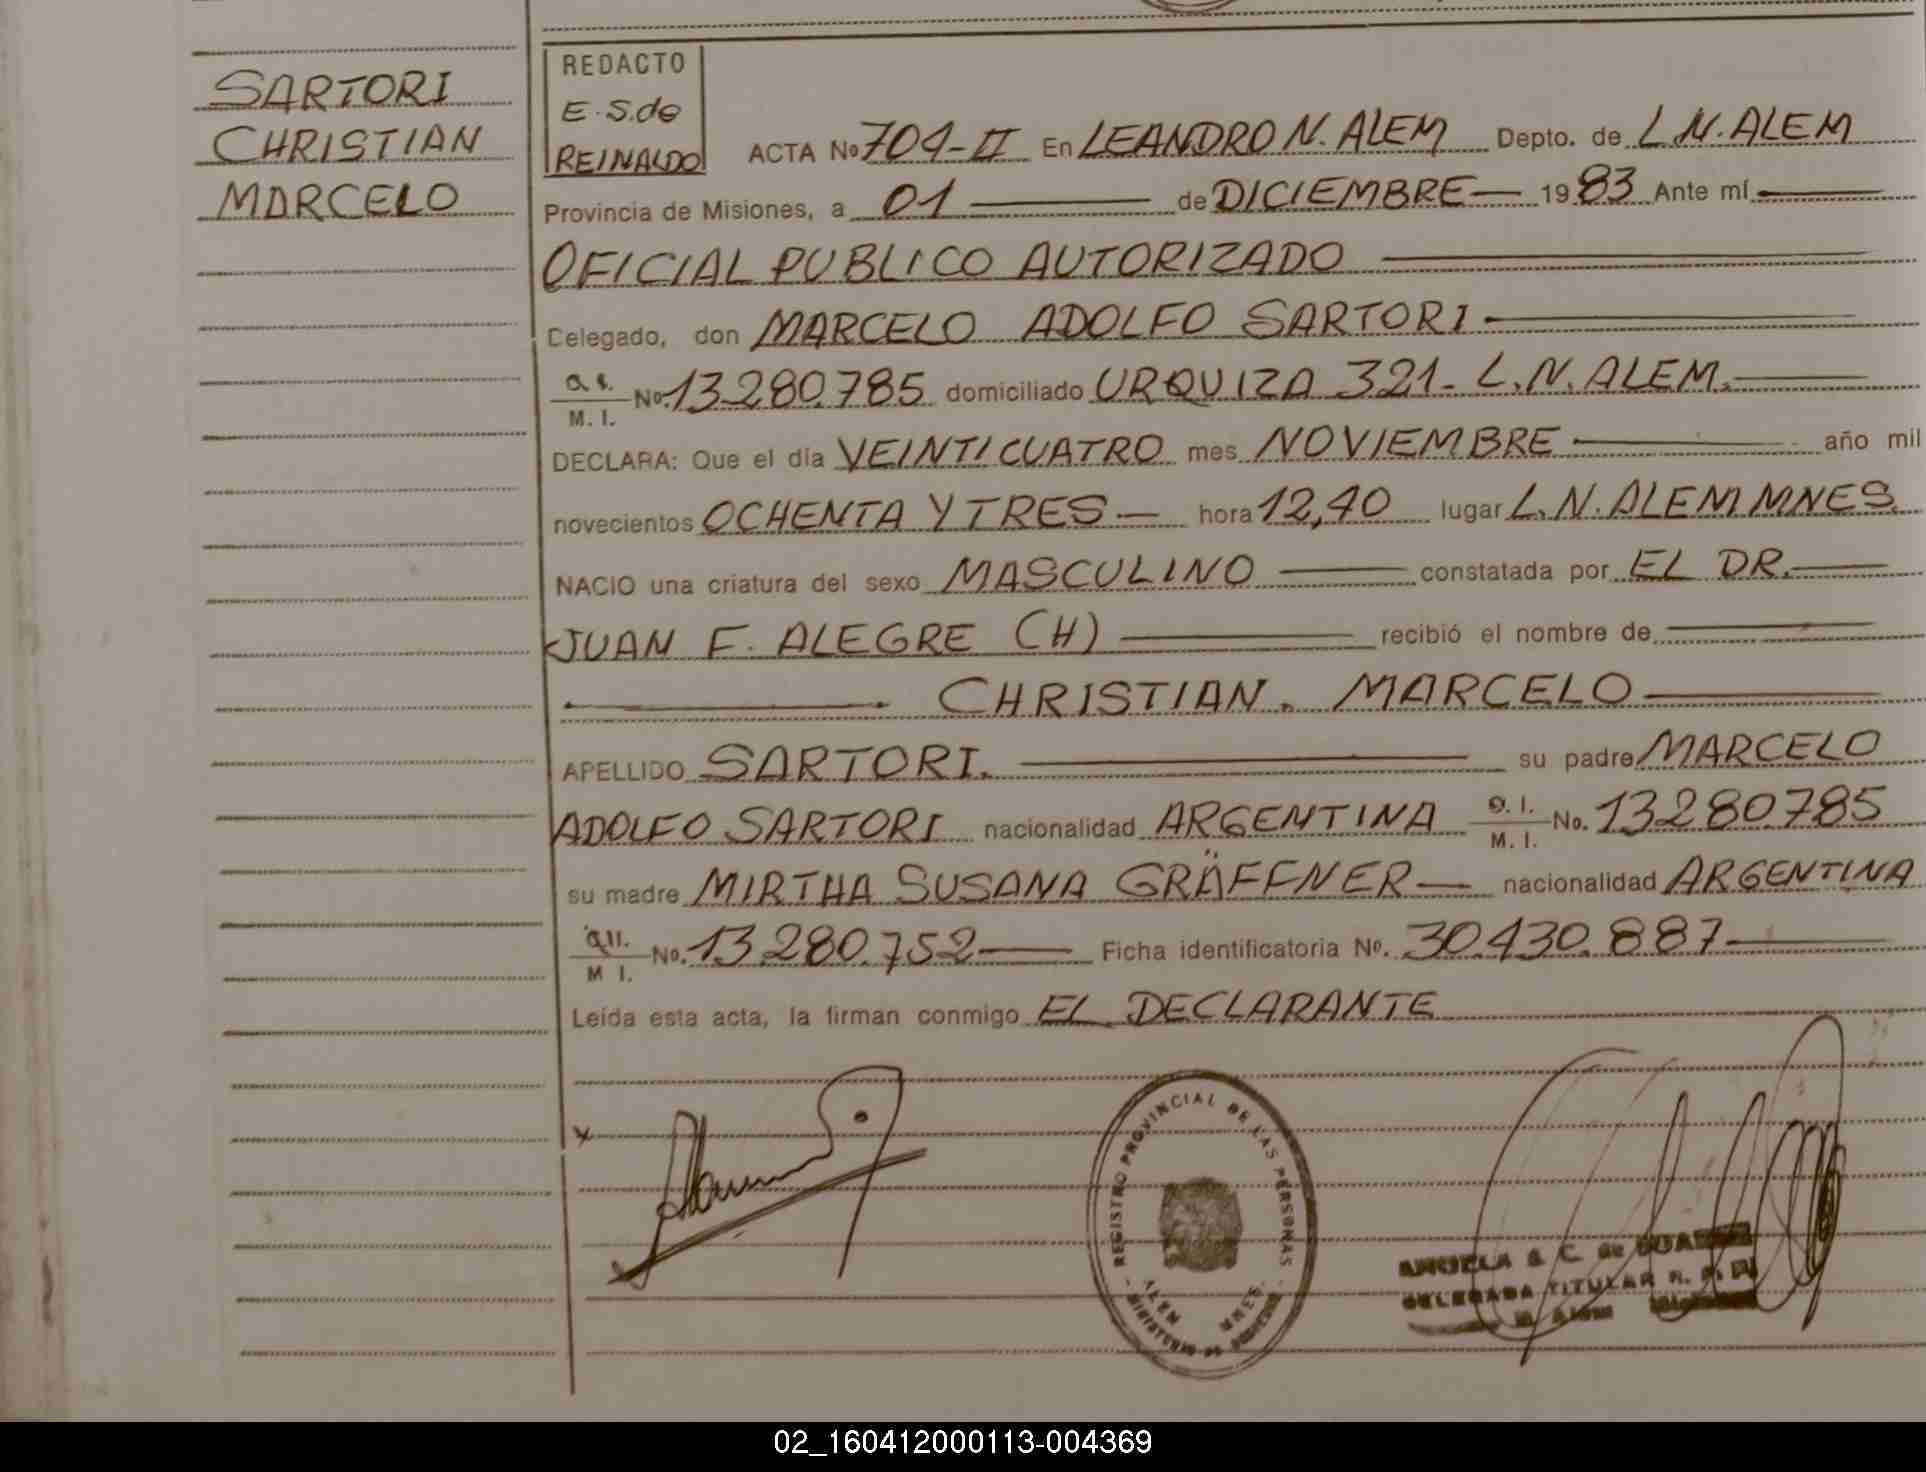 SARTORI
CHRISTIAN
MARCELO
REDACTO
E. S. de
REINALDO
ACTA Nº 701-II En LEANDRO N. ALEM Depto. de L.N. ALEM
Provincia de Misiones, a 01 de DICIEMBRE 1983 Ante mí
OFICIAL PUBLICO AUTORIZADO
Celegado, don MARCELO ADOLFO SARTORI
M. I. Nº 13.280.785 domiciliado URQUIZA 321- L.N. ALEM.
DECLARA: Que el día VEINTICUATRO mes NOVIEMBRE año mil
novecientos OCHENTA Y TRES hora 12,40 lugar L.N. ALEM MNES.
NACIO una criatura del sexo MASCULINO constatada por EL DR.
JUAN F. ALEGRE (H) recibió el nombre de
CHRISTIAN. MARCELO
APELLIDO SARTORI. su padre MARCELO
ADOLFO SARTORI nacionalidad ARGENTINA M. I. No. 13.280.785
su madre MIRTHA SUSANA GRÄFFNER nacionalidad ARGENTINA
M I. No. 13.280.752 Ficha identificatoria Nº. 30.430.887
Leída esta acta, la firman conmigo EL DECLARANTE
REGISTRO PROVINCIAL DE LAS PERSONAS
ALEM MNES.
MINISTERIO DE GOBIERNO
ANGELA C. de
DELEGADA TITULAR R. P. P.
Alem
02_160412000113-004369